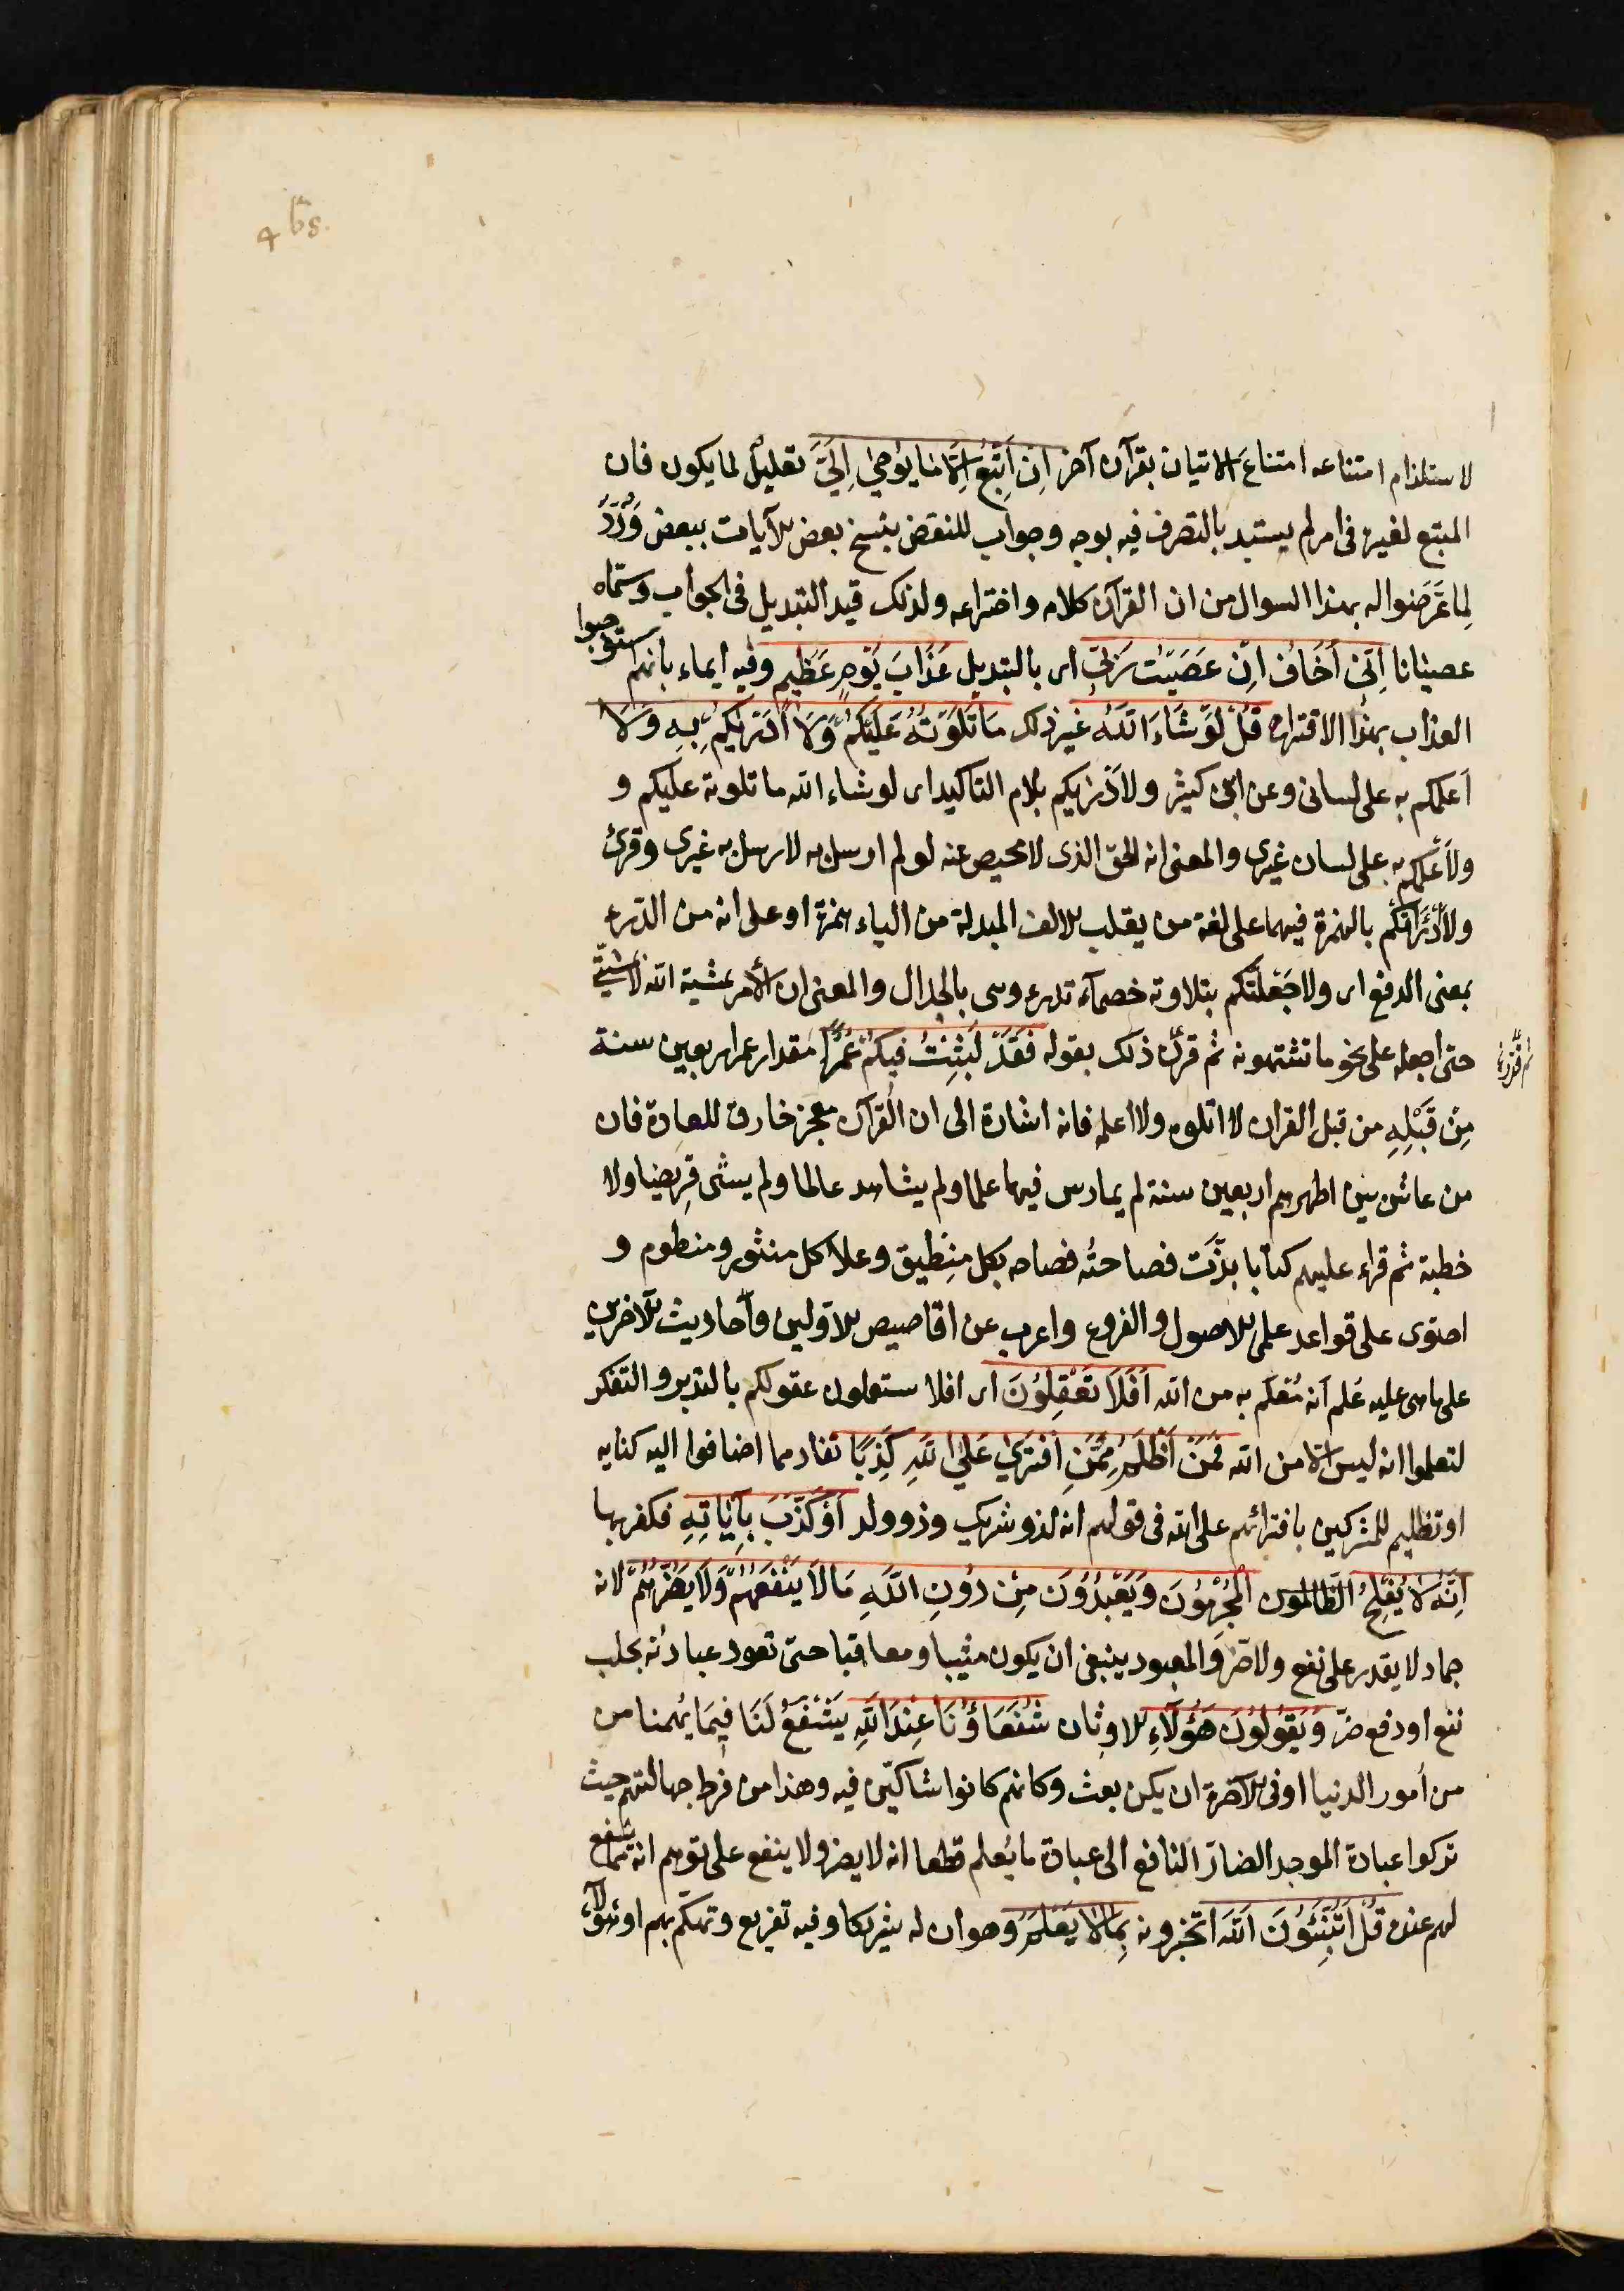 لاستلزام امتناعه امتناع الاتيان بقرآن آخر اِنْ اَتَّبِعُ اِلَّا مَا يُوحٰى اِلَيَّ تعليلٌ لما يكون فان
المتبع لغيره فى امر لم يستبد بالتصرف فيه بوجه وجواب للنقض بنسخ بعض الآيات ببعض وَرَدٌّ
لِما عَرَّضوا له بهذا السوال من ان القرآن كلامه واختراعه ولذلك قيد التبديل فى الجواب وسمّاه
عصيانا اِنّىٓ اَخَافُ اِنْ عَصَيْتُ رَبّى اى بالتبديل عَذَابَ يَوْمٍ عَظِيمٍ وفيه ايماء بانهم استوجبوا
العذاب بهذا الاقتراح قُلْ لَوْ شَاءَ اللّٰهُ غير ذلك مَا تَلَوْتُهُ عَلَيْكُمْ وَلَا اَدْرٰيكُمْ بِهِ وَلَا
اَعلمكم به على لسانى وعن ابن كثير ولاَدْرٰيكم بلام التاكيد اى لو شاء الله ما تلوته عليكم و
ولاَعْلمكم به على لسان غيرى والمعنى انه الحق الذى لا محيص عنه لو لم ارسل به لارسل به غيرى وقرئ
ولاَدْرَأكم بالهمزة فيهما على لغة من يقلب الالف المبدلة من الياء همزة او على انه من الدّرء
بمعنى الدفع اى ولاجَعَلْتُكم بتلاوته خصمآء تدرءوننى بالجدال والمعنى ان الأمر بمشية الله لا بمشيتى
حتى اجعله على نحو ما تشتهونه ثم قرّر ذلك بقوله فَقَدْ لَبِثْتُ فِيكُمْ عُمُرًا مقدار عمر اربعين سنة
مِنْ قَبْلِهِ من قبل القران لا اتلوه ولا اعلمه فانه اشارة الى ان القرآن معجز خارق للعادة فان
من عاش بين اظهرهم اربعين سنة لم يمارس فيها علما ولم يشاهد عالما ولم ينشئ قريضا ولا
خطبة ثم قراء عليهم كتابا بذّت فصاحتُه فصاحه بكل مِنطِيق وعلا كل منثور ومنظوم و
احتوى على قواعد علمى الاصول والفروع واعرب عن اقاصيص الاوّلين واحاديث الآخرين
على ماهى عليه عُلم انه مُعلَم به من الله اَفَلَا تَعْقِلُونَ اى افلا ستعملون عقولكم بالتدبر والتفكر
لتعلموا انه ليس الّا من الله فَمَنْ اَظْلَمُ مِمَّنِ افْتَرٰى عَلَى اللّٰهِ كَذِبًا تفاد مما اضافوا اليه كنايه
او تظليم للمشركين بافترائهم على الله فى قولهم انه لذو شريك وذو ولد اَوْ كَذَّبَ بِآيَاتِهِ فكفر بها
اِنَّهُ لَا يُفْلِحُ الظالمون الْمُجْرِمُونَ وَيَعْبُدُونَ مِنْ دُونِ اللّٰهِ مَا لَا يَنْفَعُهُمْ وَلَا يَضُرُّهُمْ لانه
جماد لا يقدر على نفع ولا ضرّ والمعبود ينبغى ان يكون مثيبا ومعاقبا حتى تعود عبادته بجلب
نفع او دفع ضرّ وَيَقُولُونَ هٰؤُلَآءِ الاوثان شُفَعَاؤُنَا عِنْدَ اللّٰهِ يَشْفَعُ لَنَا فِيمَا يُهمنا من
من اُمور الدنيا او فى الآخرة ان يكن بعث وكانهم كانوا شاكّين فيه وهذا من فرط جهالتهم حيث
تركوا عبادة الموجد الضارّ النافع الى عبادة ما يُعلم قطعا انه لا يضر ولا ينفع على توهم انه يشفع
لهم عنده قُلْ اَتُنَبِّئُونَ اللّٰهَ اتخبرونه بِمَا لَا يَعْلَمُ وهو ان له شريكا وفيه تفريع وتهكّم بهم او هؤلآء
ثم قرر